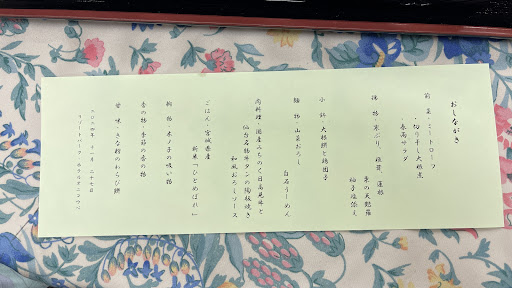 おしながき
前　菜・ミートローフ
・切り干し大根煮
・春雨サラダ
揚　物・寒ぶり、椎茸、蓮根
東の天麩羅
柚子塩添え
小　鉢・大根餅と鶏団子
麺　物・山菜おろし
白石うーめん
肉料理・国産みちのく日高見牛と
仙台名物牛タンの陶板焼き
和風おろしソース
ごはん・宮城県産
新米「ひとめぼれ」
椀　物・木ノ子の吸い物
香の物・季節の香の物
甘　味・きな粉のわらび餅
二〇二四年　十一月　二十七日